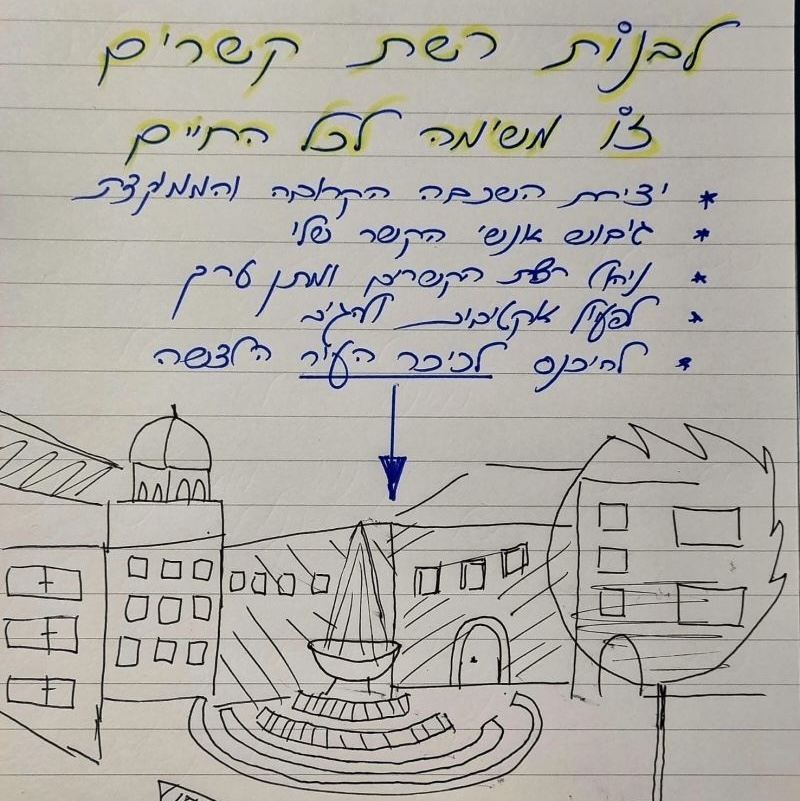 לבנות רשת קשרים
זו משימה לכל החיים
* יצירת השכבה הקרובה והממוקדת
* גיבוש אנשי הקשר שלי
* ניהול רשת הקשרים ומתן ערך
* לפעול אקטיבית ולהגיב
* להיכנס לכיכר העיר החדשה